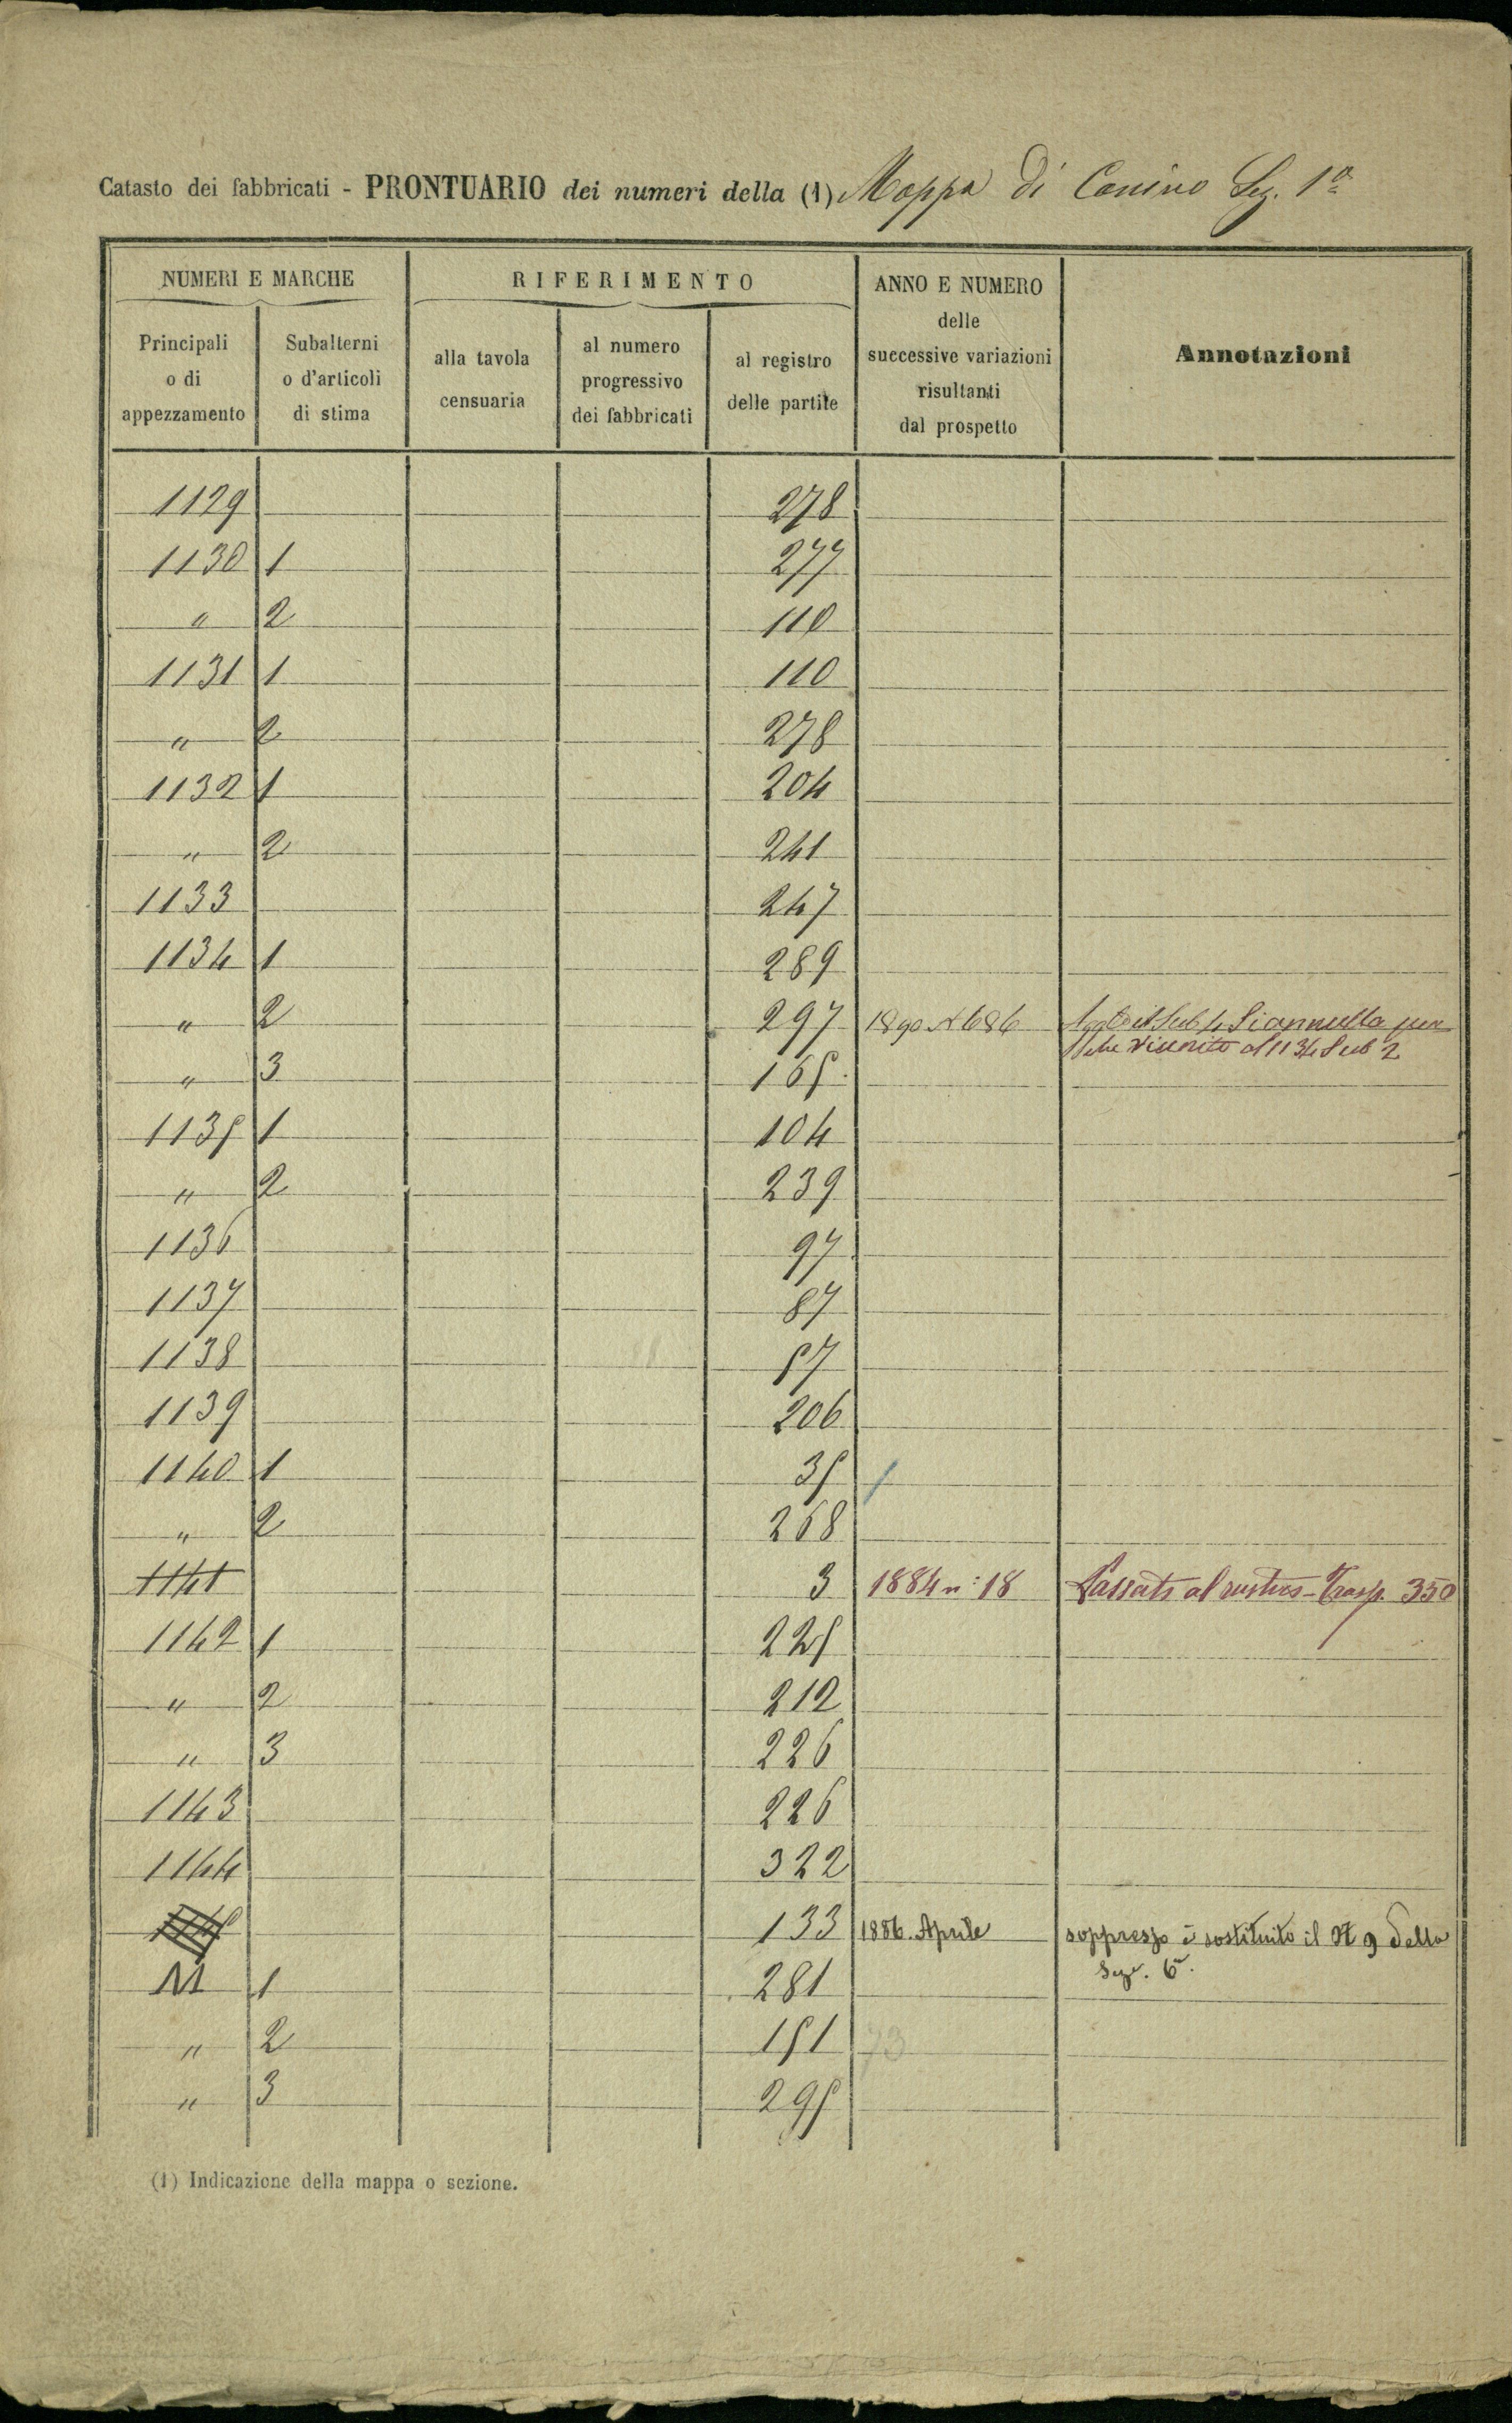 Catasto dei fabbricati - PRONTUARIO dei numeri della (1) Mappa di Canino Sez. 1ª
NUMERI E MARCHE
RIFERIMENTO
ANNO E NUMERO
delle
successive variazioni
risultanti
dal prospetto
Annotazioni
Principali
o di
appezzamento
Subalterni
o d'articoli
di stima
alla tavola
censuaria
al numero
progressivo
dei fabbricati
al registro
delle partite
1129 278
1130 1 277
" 2 110
1131 1 110
" 2 278
1132 1 204
" 2 241
1133 247
1134 1 289
" 2 297 1890 N 686 Sub 4 Si annulla per
riunito al 1134 Sub 2
" 3 165
1135 1 104
" 2 239
1136 97
1137 87
1138 57
1139 206
1140 1 35
" 2 268
1141 3 1884 n: 18 Passato al rustico - Trasp. 350
1142 1 225
" 2 212
" 3 226
1143 226
1144 322
133 1886. Aprile soppresso è sostituito il N 9 della
Sez. 6ª.
M 1 281
" 2 151
" 3 295
(1) Indicazione della mappa o sezione.